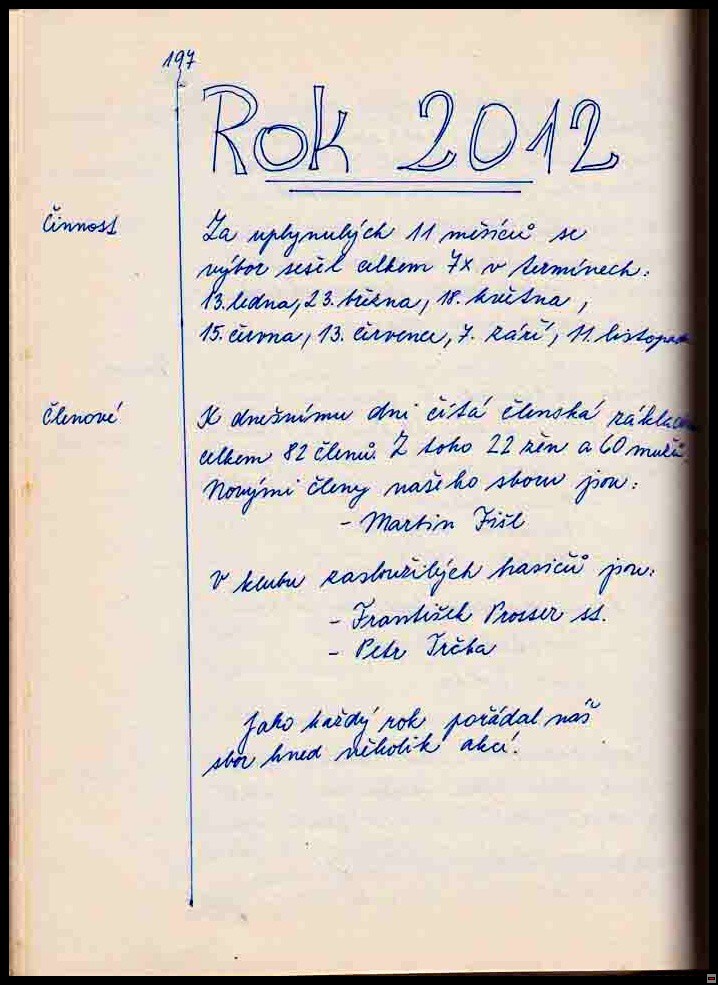 197
Rok 2012
Činnost
Za uplynulých 11 měsíců se
výbor sešel celkem 7x v termínech:
13. ledna, 23. března, 18. května,
15. června, 13. července, 7. září, 11. listopad
Členové
K dnešnímu dni čítá členská základna
celkem 82 členů. Z toho 22 žen a 60 mužů.
Novými členy našeho sboru jsou:
- Martin Fišl
V klubu zasloužilých hasičů jsou:
- František Prosser st.
- Petr Trčka
Jako každý rok pořádal náš
sbor hned několik akcí.